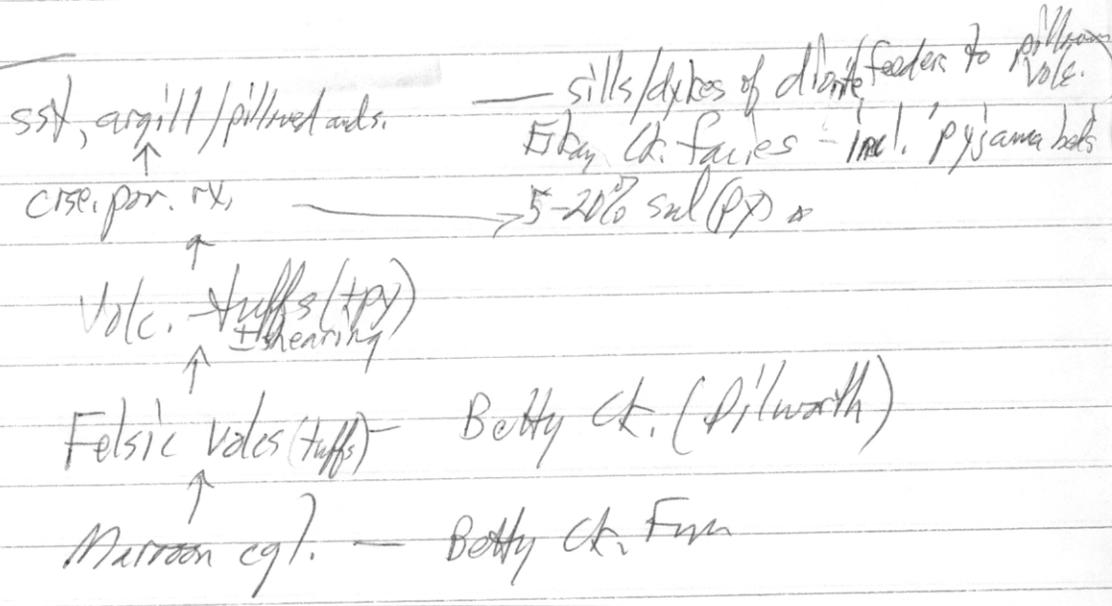 sst, argill/pillowed ands. — sills/dykes of diorite feeders to pillow volc.
↑ Eskay Ck. facies - incl. 'pyjama beds'
crse. por. rx, → 5-20% sul (py)
↑
Volc. tuffs (±py)
± shearing
↑
Felsic volcs (tuffs) - Betty Ck. (Dilworth)
↑
Maroon cgl. — Betty Ck. Fmn